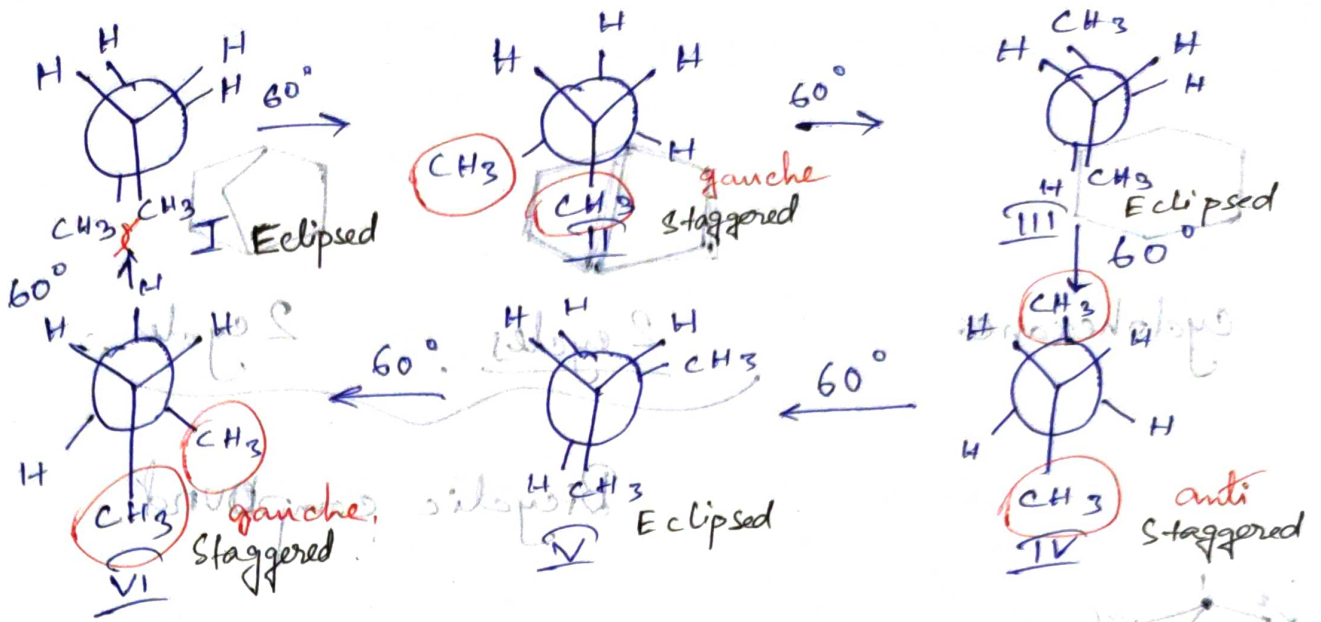 H H H H
60°
CH3 CH3
I Eclipsed
H H H
60°
CH3 H
gauche
CH3 Staggered
II
CH3
H H
H
H CH3
Eclipsed
III
60°
CH3
H H
H H
CH3
anti
Staggered
IV
60°
H H H
CH3
H CH3
Eclipsed
V
60°
H
H H
CH3
H
CH3 gauche.
Staggered
VI
60°